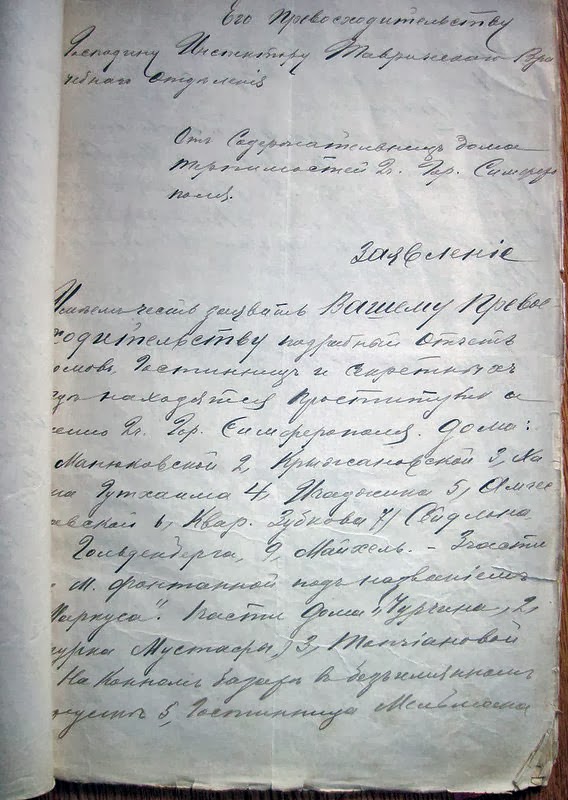 Его Превосходительству
Господину Инспектору Таврическаго Вра
чебнаго отделенія
Отъ Содержательницъ дома
терпимостей 2ч. Гор. Симферо
поля.
Заявленіе
честь заявить Вашему Превос
ходительству подробный отчетъ
домовъ, Гостинницъ и секретныхъ
где находятся Проститутки а
менно 2ч. Гор. Симферополя. Дома:
Манюковской 2, Крыжановской 3, Ха
на Гутхаима 4, 5,
вской 6, Квар. Зубкова 7/ Сейдлина
Гольденберга, 9, Майхель. - 3 части
М. фонтанной подъ названіемъ
Маркуса". части Дома, Чурчина, 2,
Мустафы, 3, Топчіановой
На Конномъ базаре в безъимянномъ
5, Гостинница